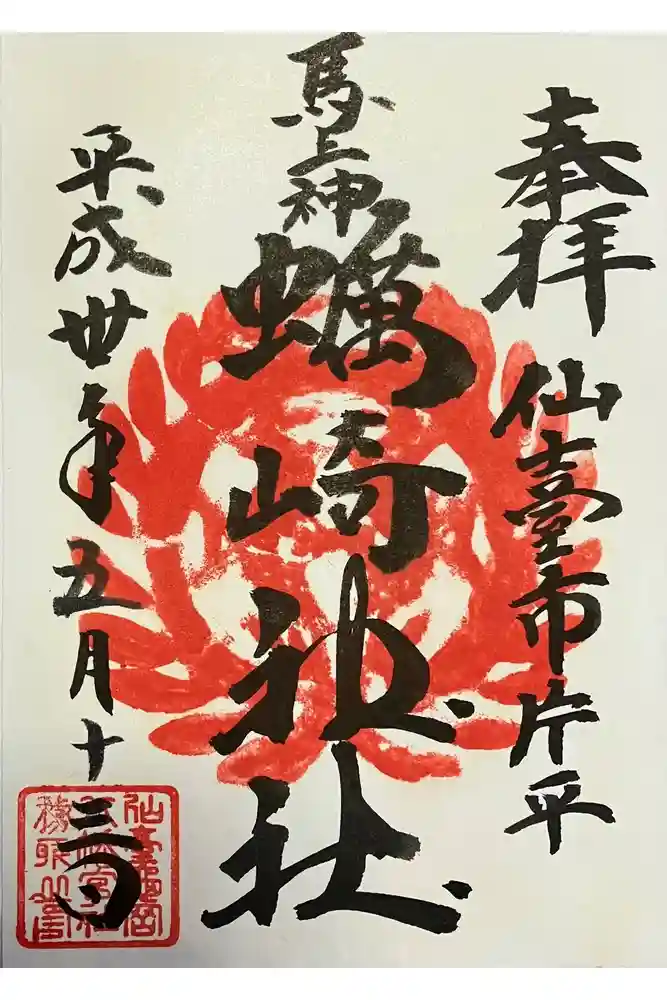 奉拝
仙臺市片平
馬上神
蠣崎神社
平成丗年五月十三日